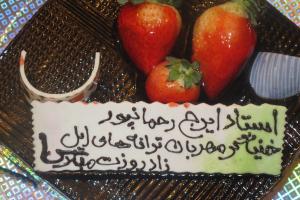 استاد ایرج رحمانپور
خنیاگر مهربان ترانه‌های ایل
زادروزت مبارک